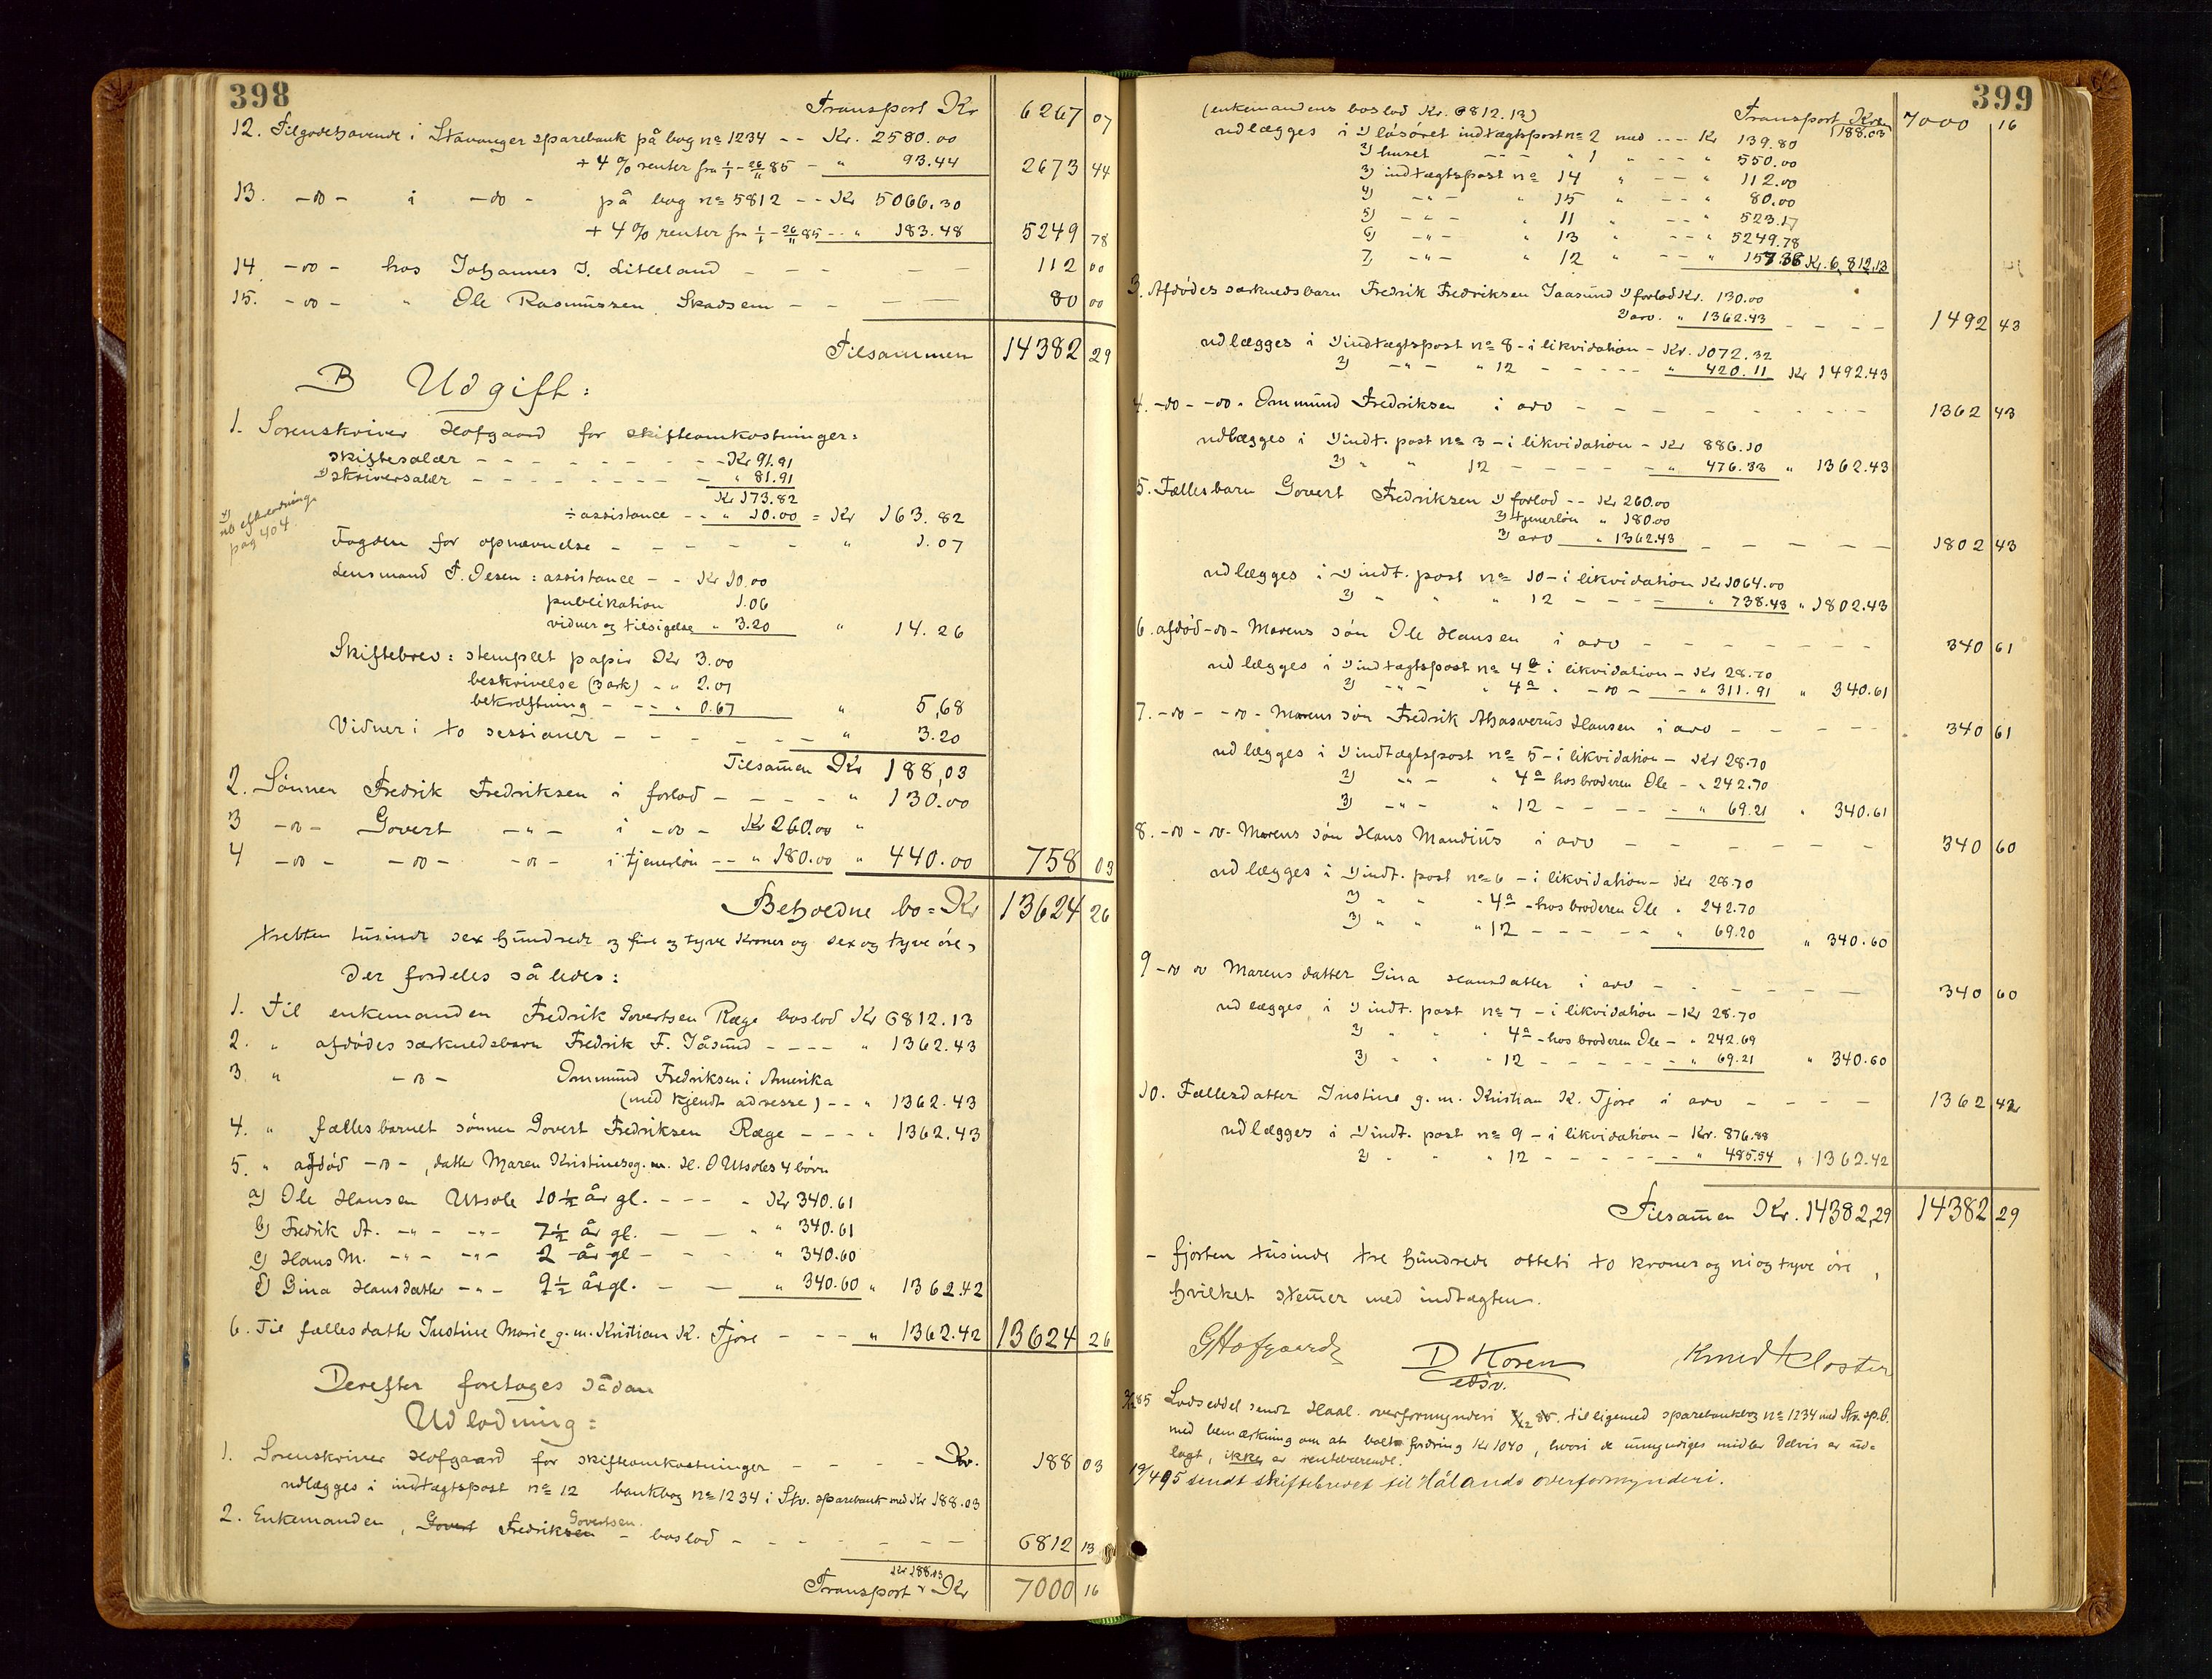 398
Transport Kr 6267 07
12. Tilgodehavende i Stavanger sparebank på bog no 1234 - - Kr. 2580.00
+ 4% renter fra 1/1 - 26/11 85 - " 93.44 2673 44
13. -do- i -do- på bog no 5812 - - Kr 5066.30
+ 4% renter fra 1/1 - 26/11 85 - - " 183.48 5249 78
14 -do- hos Johannes J. Litleland - - - - - 112 00
15. -do- " Ole Rasmussen Skadsem - - - - 80 00
Tilsammen 14382 29
B Udgift:
1. Sorenskriver Hofgaard for skifteomkostninger:
skiftesalær - - - - - - - - Kr 91.91
1) skriversalær - - - - - - - - " 81.91
Kr 173.82
÷ assistance - - " 10.00 = Kr 163.82
1) nb efterlodning pag 404.
Fogden for opnævnelse - - - - - - " 1.07
Lensmand T. Olsen: assistance - - Kr 10.00
publikation 1.06
vidner og tilsigelse " 3.20 " 14.26
Skiftebrev: stemplet papir Kr 3.00
beskrivelse (3 ark) - " 2.01
bekræftning - - - " 0.67 " 5,68
Vidner i to sessioner - - - - - - " 3.20
Tilsamen Kr 188,03
2. Sønnen Fredrik Fredriksen i forlod - - - - " 130.00
3 -do- Govert -"- i -do- Kr 260.00 "
4 -do- -do- -do- i tjenerløn - - " 180.00 " 440.00 758 03
Beholdne bo = Kr 13624 26
tretten tusinde sex hundrede og fire og tyve kroner og sex og tyve øre,
der fordeles således:
1. Til enkemanden Fredrik Govertsen Ræge boslod Kr 6812.13
2. " afdødes særkuldsbarn Fredrik F. Jåsund - - - - " 1362.43
3. " -do- Ommund Fredriksen i Amerika
(med kjendt adresse) - - " 1362.43
4. " fællesbarnet sønnen Govert Fredriksen Ræge - - - " 1362.43
5. " afdød -do-, datter Maren Kristines g. m. H. O Utsoles 4 børn
a) Ole Hansen Utsole 10 1/2 år gl. - - - - Kr 340.61
b) Fredrik A. -"- -"- 7 1/2 år gl. - - " 340.61
c) Hans M. -"- -"- 2 år gl - - " 340.60
d) Gina Hansdatter -"- 9 1/2 år gl. - - " 340.60 " 1362.42
6. Til fællesdatter Justine Marie g. m. Kristian K. Tjore - - - " 1362.42 13624 26
Derefter foretages sådan
Udlodning:
1. Sorenskriver Hofgaard for skifteomkostninger - - - - Kr. 188 03
udlægges i indtægtspost no 12 bankbog no 1234 i Stv. sparebank med Kr 188.03
Govertsen
2. Enkemanden, Govert Fredriksen - boslod - - - - - - - 6812 13
Kr 188.03
Transport Kr 7000 16
399
(enkemandens boslod Kr. 6812.13) Transport Kr 7000 16
(188.03
udlægges i 1) løsøret indtægtspost no 2 med - - - Kr 139.80
2) huset - - - " 1 " - - " 550.00
3) indtægtspost no 14 " - - " 112.00
4) -"- " 15 " - - " 80.00
5) - - - " 11 " - - " 523.17
6) -"- " 13 " - - " 5249.78
7) -"- " 12 " - - " 157.38 Kr. 6,812,13
3. Afdødes særkuldsbarn Fredrik Fredriksen Jaasund 1) forlod Kr. 130.00
2) arv. " 1362.43 - - - - 1492 43
udlægges i 1) indtægtspost no 8 - i likvidation - Kr. 1072.32
2) -"- " 12 - - - - - " 420.11 Kr 1492.43
4. -do- -do- Ommund Fredriksen i arv - - - - - - - - - 1362 43
udlægges i 1) indt. post no 3 - i likvidation - Kr 886.10
2) " " 12 - - - - - " 476.33 " 1362.43
5. Fællesbarn Govert Fredriksen 1) forlod - - Kr 260.00
2) tjenerløn " 180.00
3) arv " 1362.43 - - - - - 1802 43
udlægges i 1) indt. post no 10 - i likvidation Kr 1064.00
2) " " " 12 - - - - " 738.43 " 1802.43
6. afdød -do- Marens søn Ole Hansen i arv - - - - - - - 340 61
udlægges i 1) indtægtspost no 4 b i likvidation - Kr 28.70
2) -"- " 4 a " -do- - - " 311.91 " 340.61
7. -do- -do- Marens søn Fredrik Ahasverus Hansen i arv - - - - - 340 61
udlægges i 1) indtægtspost no 5 - i likvidation - Kr 28.70
2) -"- " 4 a hos broderen Ole - " 242.70
3) -"- " 12 - - - - - " 69.21 " 340.61
8. -do- do- Marens søn Hans Mandius i arv - - - - - - - 340 60
udlægges i 1) indt. post no 6 - i likvidation - Kr 28.70
2) " " " 4 a - hos broderen Ole " 242.70
3) " " " 12 - - - - - " 69.20 " 340.60
9 -do do Marens datter Gina Hansdatter i arv - - - - - - 340 60
udlægges i 1) indt. post no 7 - i likvidation - Kr 28.70
2) " " " 4 a - hos broderen Ole - " 242.69
3) " " " 12 - - - - - - " 69.21 " 340.60
10. Fællesdatter Justine g. m. Kristian K. Tjore i arv - - - - 1362 42
udlægges i 1) indt. post no 9 - i likvidation - Kr. 876.88
2) " " " 12 - - - - - - " 485.54 " 1362.42
Tilsamen Kr. 14382,29 14382 29
- fjorten tusinde tre hundrede otteti to kroner og ni og tyve øre,
hvilket stemer med indtægten.
G Hofgaard D Koren Knud Kloster
edsv.
3/12 85 Lodseddel sendt Haal. overformynderi 3/12 85. tilligemed sparebankbog no 1234 med Stv. sp.b.
med bemærkning om at fordring Kr 1040, hvori de umyndiges midler delvis er ud=
lagt, ikke er rentebærende.
19/4 95 sendt skiftebrevet til Hålands overformynderi.